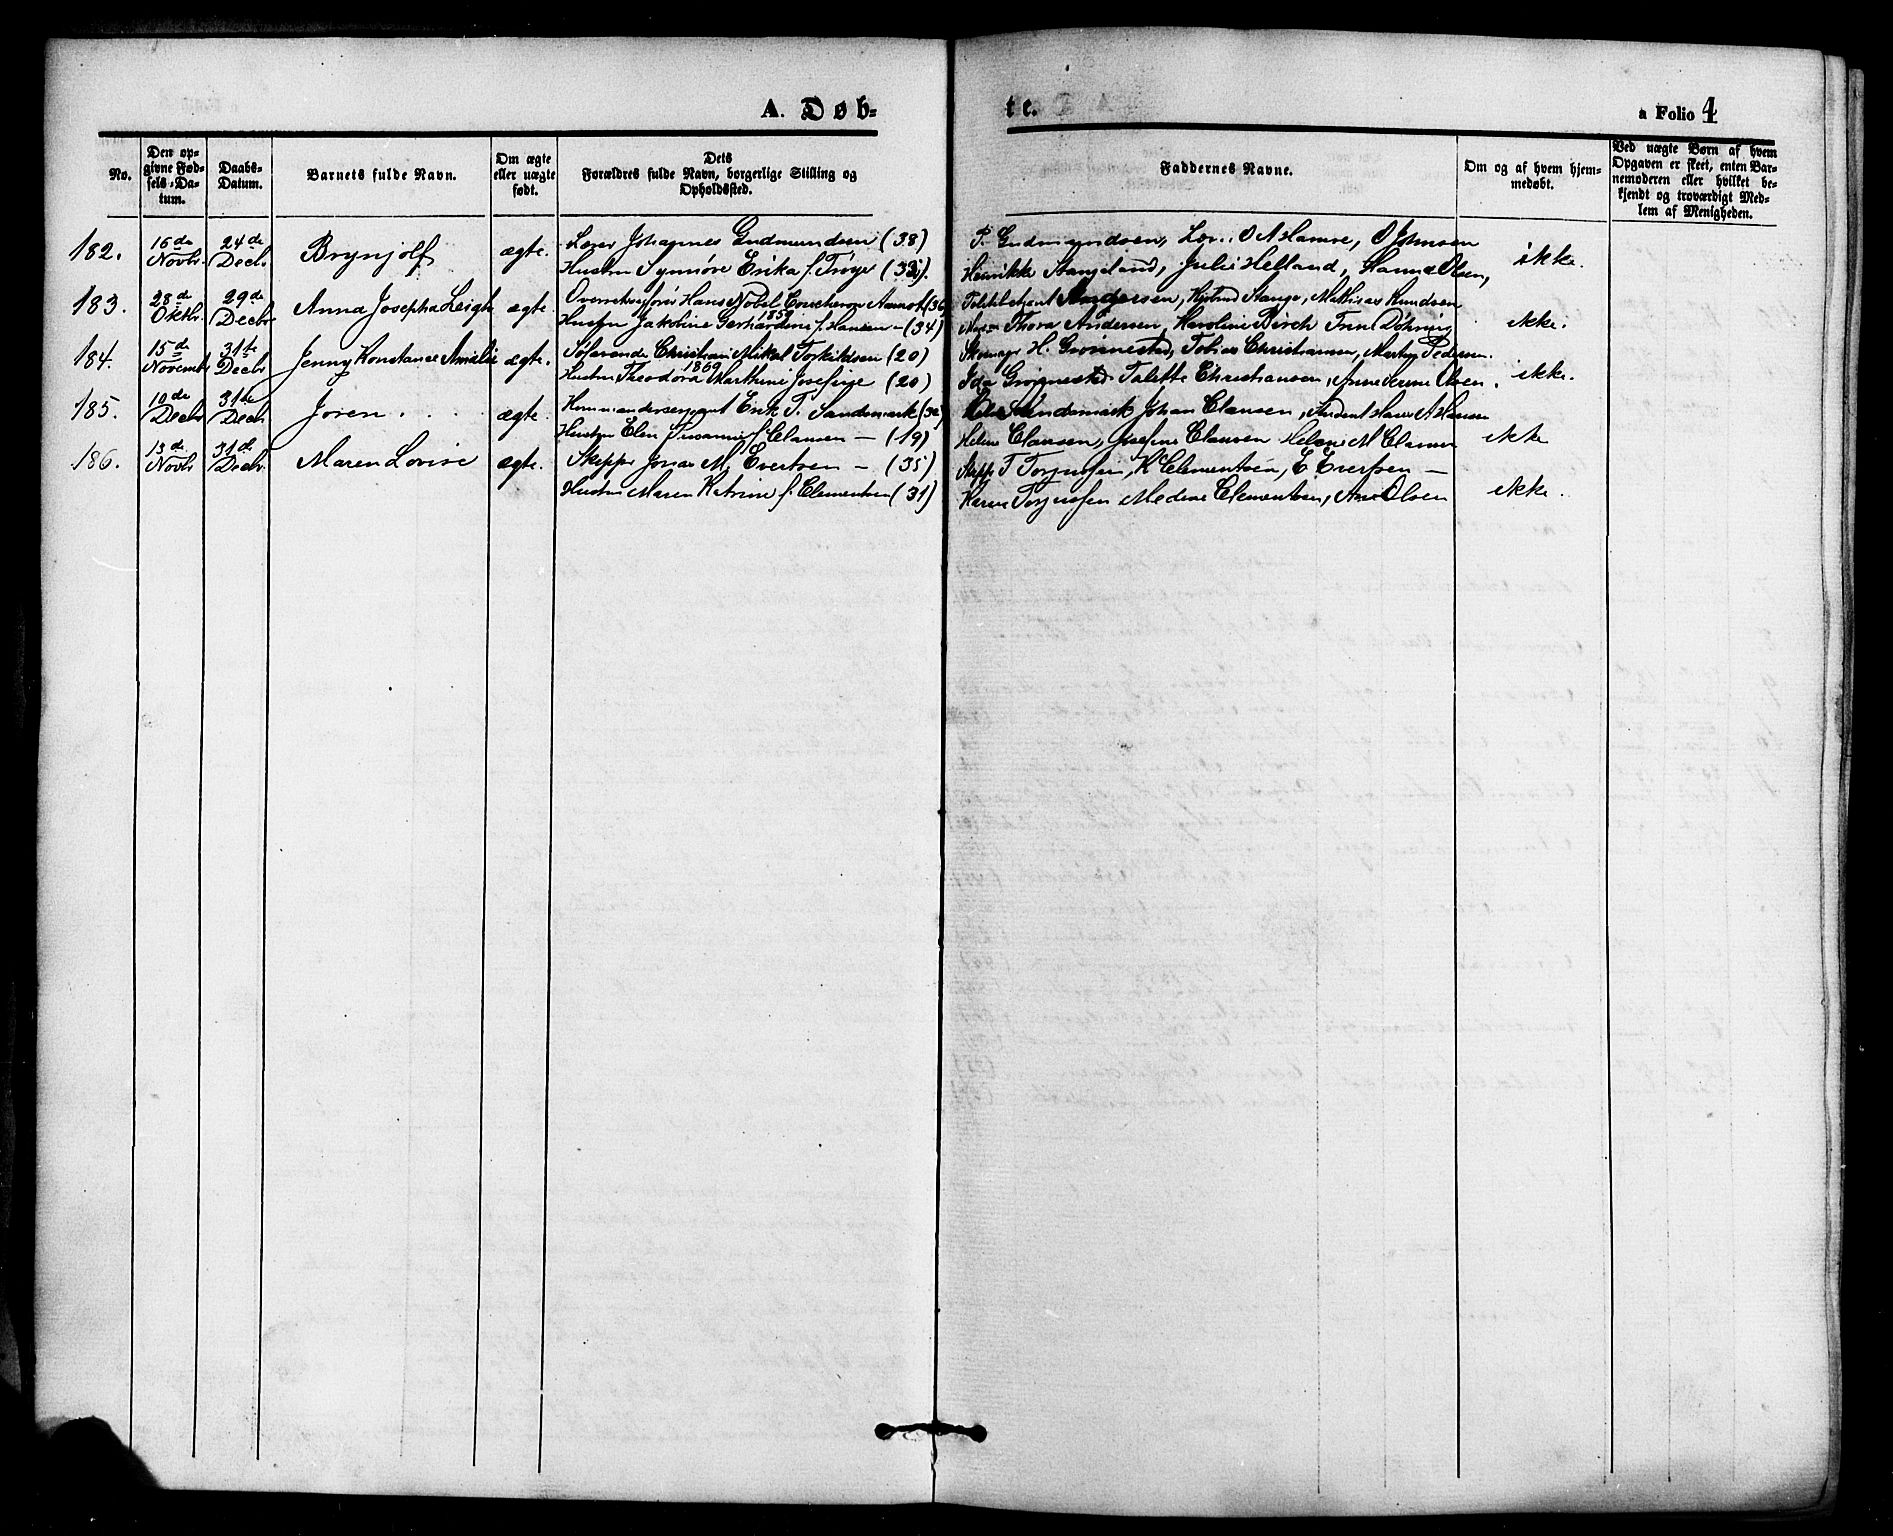 A. Døb-
te.
a Folio 4
No.
Den op-
givne Fød-
sels-Da-
tum.
Daabs-
Datum.
Barnets fulde Navn.
Om ægte
eller uægte
født.
Dets
Forældres fulde Navn, borgerlige Stilling og
Opholdssted.
Faddernes Navne.
Om og af hvem hjem-
medøbt.
Ved uægte Børn af hvem
Opgaven er skeet, enten Bar-
nemoderen eller hvilket be-
kjendt og troværdigt Med-
lem af Menigheden.
182.
16de
Novbr.
24de
Decbr
Brynjolf
ægte.
Lærer Johannes Gudmundsen (38)
Hustru Synnøve Erika f. Trøye
Gudmundsen, O A Hamre, O Johnsen
Henrikke Stangeland, Julie Helland, Hanna Olsen,
ikke.
183.
28de
Oktbr.
29de
Decbr
Anna Josepha Leigh
ægte
Hans Nobel Aanrot
1859
Hustru Jakobine Gerhardine f. Hansen - (34)
Andersen, Stange, Mathias Knudsen
Thora Andersen, Karoline Birch Døhring
ikke.
184.
15de
Novembr
31te
Decbr
Jenny Konstance Amalie
ægte.
Søfarende Christian Mikal Torkildsen (20)
1869
Hustru Theodora Marthine Josefine (20)
Skomager H. Grønnestad, Tobias Christiansen, Martin Pedersen.
Ida Grønnestad Talette Christiansen, Anne Serine Olsen.
ikke.
185.
10de
Decbr
31te
Decbr
Joren
ægte.
Kommandersergeant Erik T. Sandsmark
Hustru Elen Susanne f. Clausen - (19)
Sandsmark Johan Clausen, Student Hans A Hansen
Helene Clausen, Josefine Clausen Helene M Clausen
ikke
186.
13de
Novbr
31te
Decbr.
Maren Lovise
ægte.
Skipper Jonas M. Evertsen - (35)
Hustru Maren Katrine f. Clementsen (31)
Skipper T Torjussen, K Clementsen, E Evertsen -
Karen Torjussen Medine Clementsen, Ane Olsen
ikke.